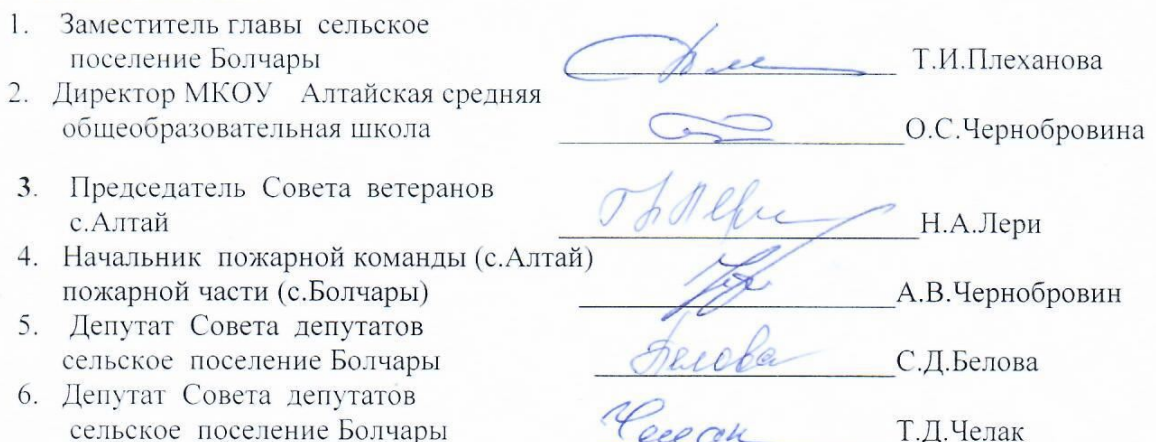 1. Заместитель главы сельское
поселение Болчары Т.И.Плеханова
2. Директор МКОУ Алтайская средняя
общеобразовательная школа О.С.Чернобровина
3. Председатель Совета ветеранов
с.Алтай Н.А.Лери
4. Начальник пожарной команды (с.Алтай)
пожарной части (с.Болчары) А.В.Чернобровин
5. Депутат Совета депутатов
сельское поселение Болчары Белова С.Д.Белова
6. Депутат Совета депутатов
сельское поселение Болчары Челак Т.Д.Челак